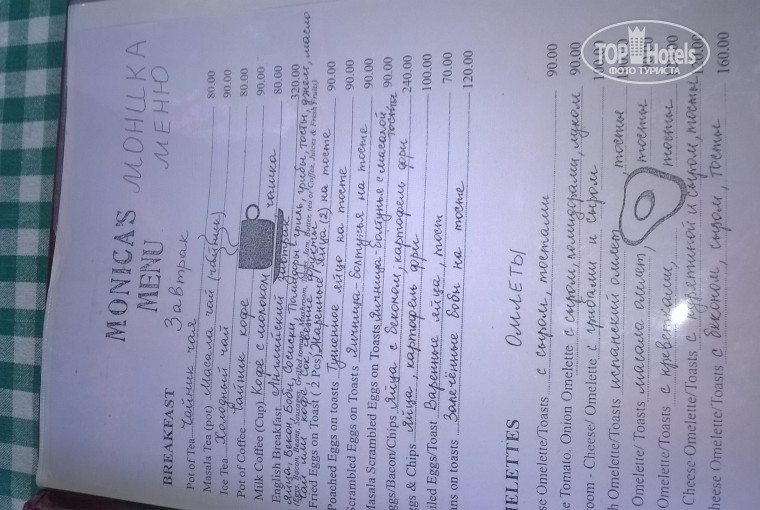 TOP Hotels
ФОТО ТУРИСТА
MONICA'S МОНИКА
MENU МЕНЮ
BREAKFAST Завтрак
Pot of Tea Чайник чая 80.00
Masala Tea (pot) Масала чай (чайник) 90.00
Ice Tea Холодный чай 80.00
Pot of Coffee Чайник кофе 90.00
Milk Coffee (Cup) Кофе с молоком чашка 80.00
English Breakfast Английский завтрак 320.00
яйца, бекон, бобы, сосиски, помидоры гриль, грибы, тосты, джем, масло
чай или кофе, сок, свежие фрукты
Fried Eggs on Toast (2 Pcs) Жаренные яйца (2) на тосте 90.00
Poached Eggs on toasts Тушенное яйцо на тосте 90.00
Scrambled Eggs on Toasts Яичница-болтунья на тосте 90.00
Masala Scrambled Eggs on Toasts Яичница-болтунья с масалой 90.00
ggs/Bacon/Chips Яйца с беконом, картофель фри тосты 240.00
gs & Chips Яйца, картофель фри 100.00
iled Eggs/Toast Варенные яйца, тост 70.00
ans on toasts Запечённые бобы на тосте 120.00
IELETTES ОМЛЕТЫ
se Omelette/Toasts с сыром, тостами 90.00
e Tomato. Onion Omelette с сыром, помидорами, луком 90.00
room - Cheese/ Omelette с грибами и сыром
h Omelette/Toasts испанский омлет, тосты
Omelette/Toasts масала омлет, тосты
Omelette/Toasts с креветками, тосты
Cheese Omelette/Toasts с курятиной и сыром, тосты
heese Omelette/Toasts с беконом, сыром, тосты 160.00